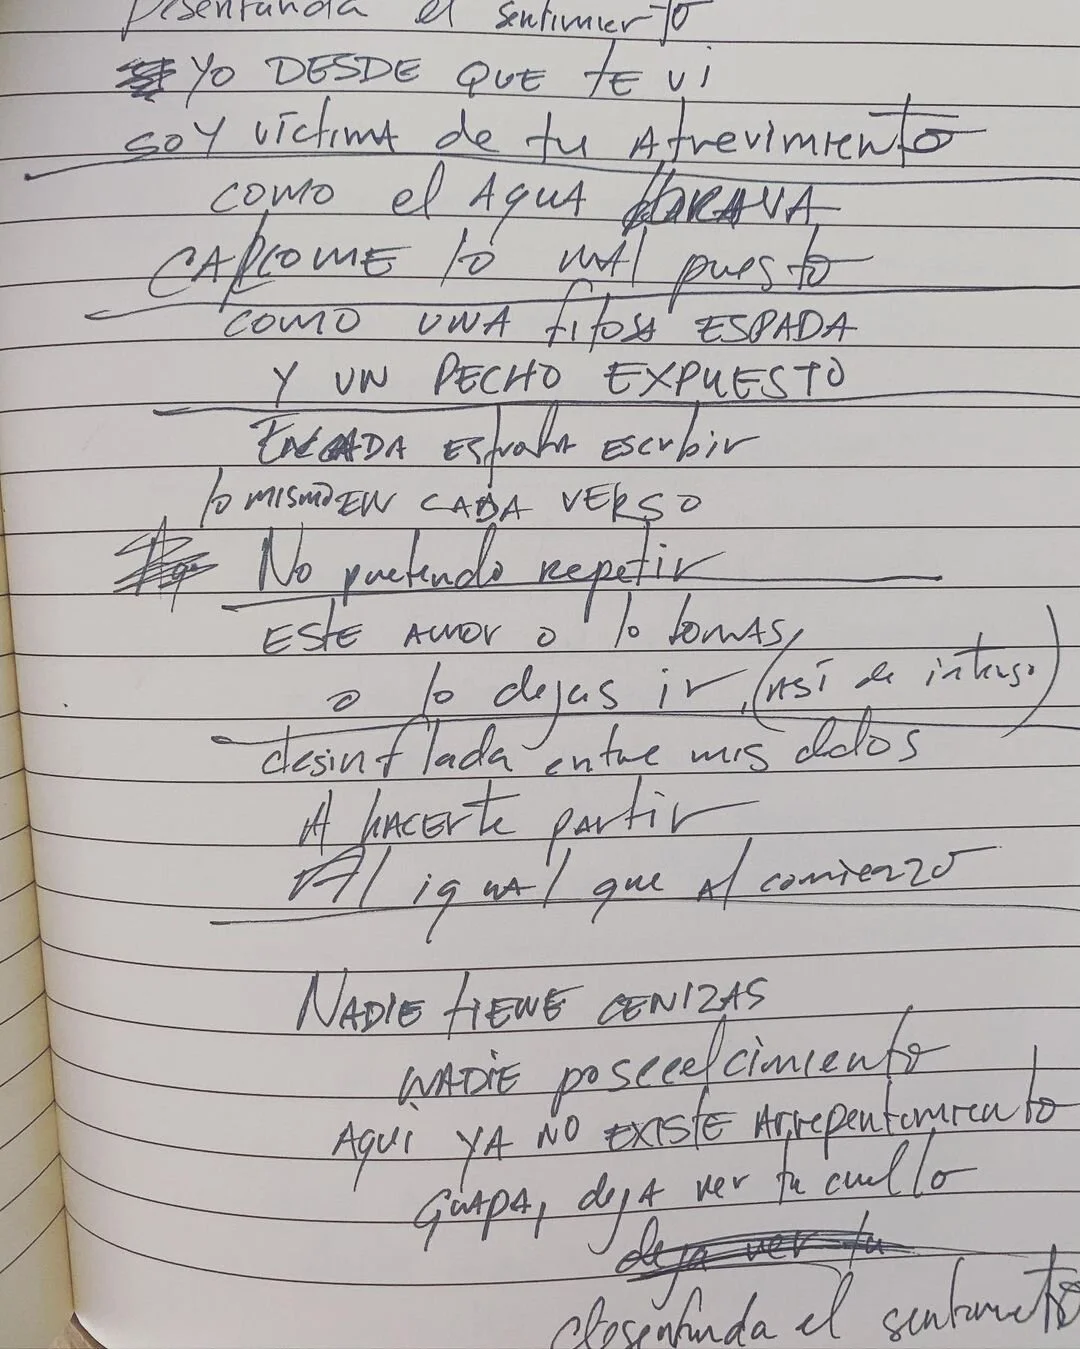 Desenfunda el sentimiento
YO DESDE QUE TE VI
SOY VÍCTIMA de tu Atrevimiento
COMO el AGUA BRAVA
CARCOME lo mal puesto
COMO UNA filosa ESPADA
Y UN PECHO EXPUESTO
EN CADA estrofa escribir
lo mismo EN CADA VERSO
No pretendo repetir
ESTE AMOR o lo tomas,
o lo dejas ir, (así de intenso)
desinflada entre mis dedos
A HACERte partir
Al igual que al comienzo
NADIE TIENE CENIZAS
NADIE posee el cimiento
AQUÍ YA NO EXISTE Arrepentimiento
GUAPA, deja ver tu cuello
deja ver tu
desenfunda el sentimiento